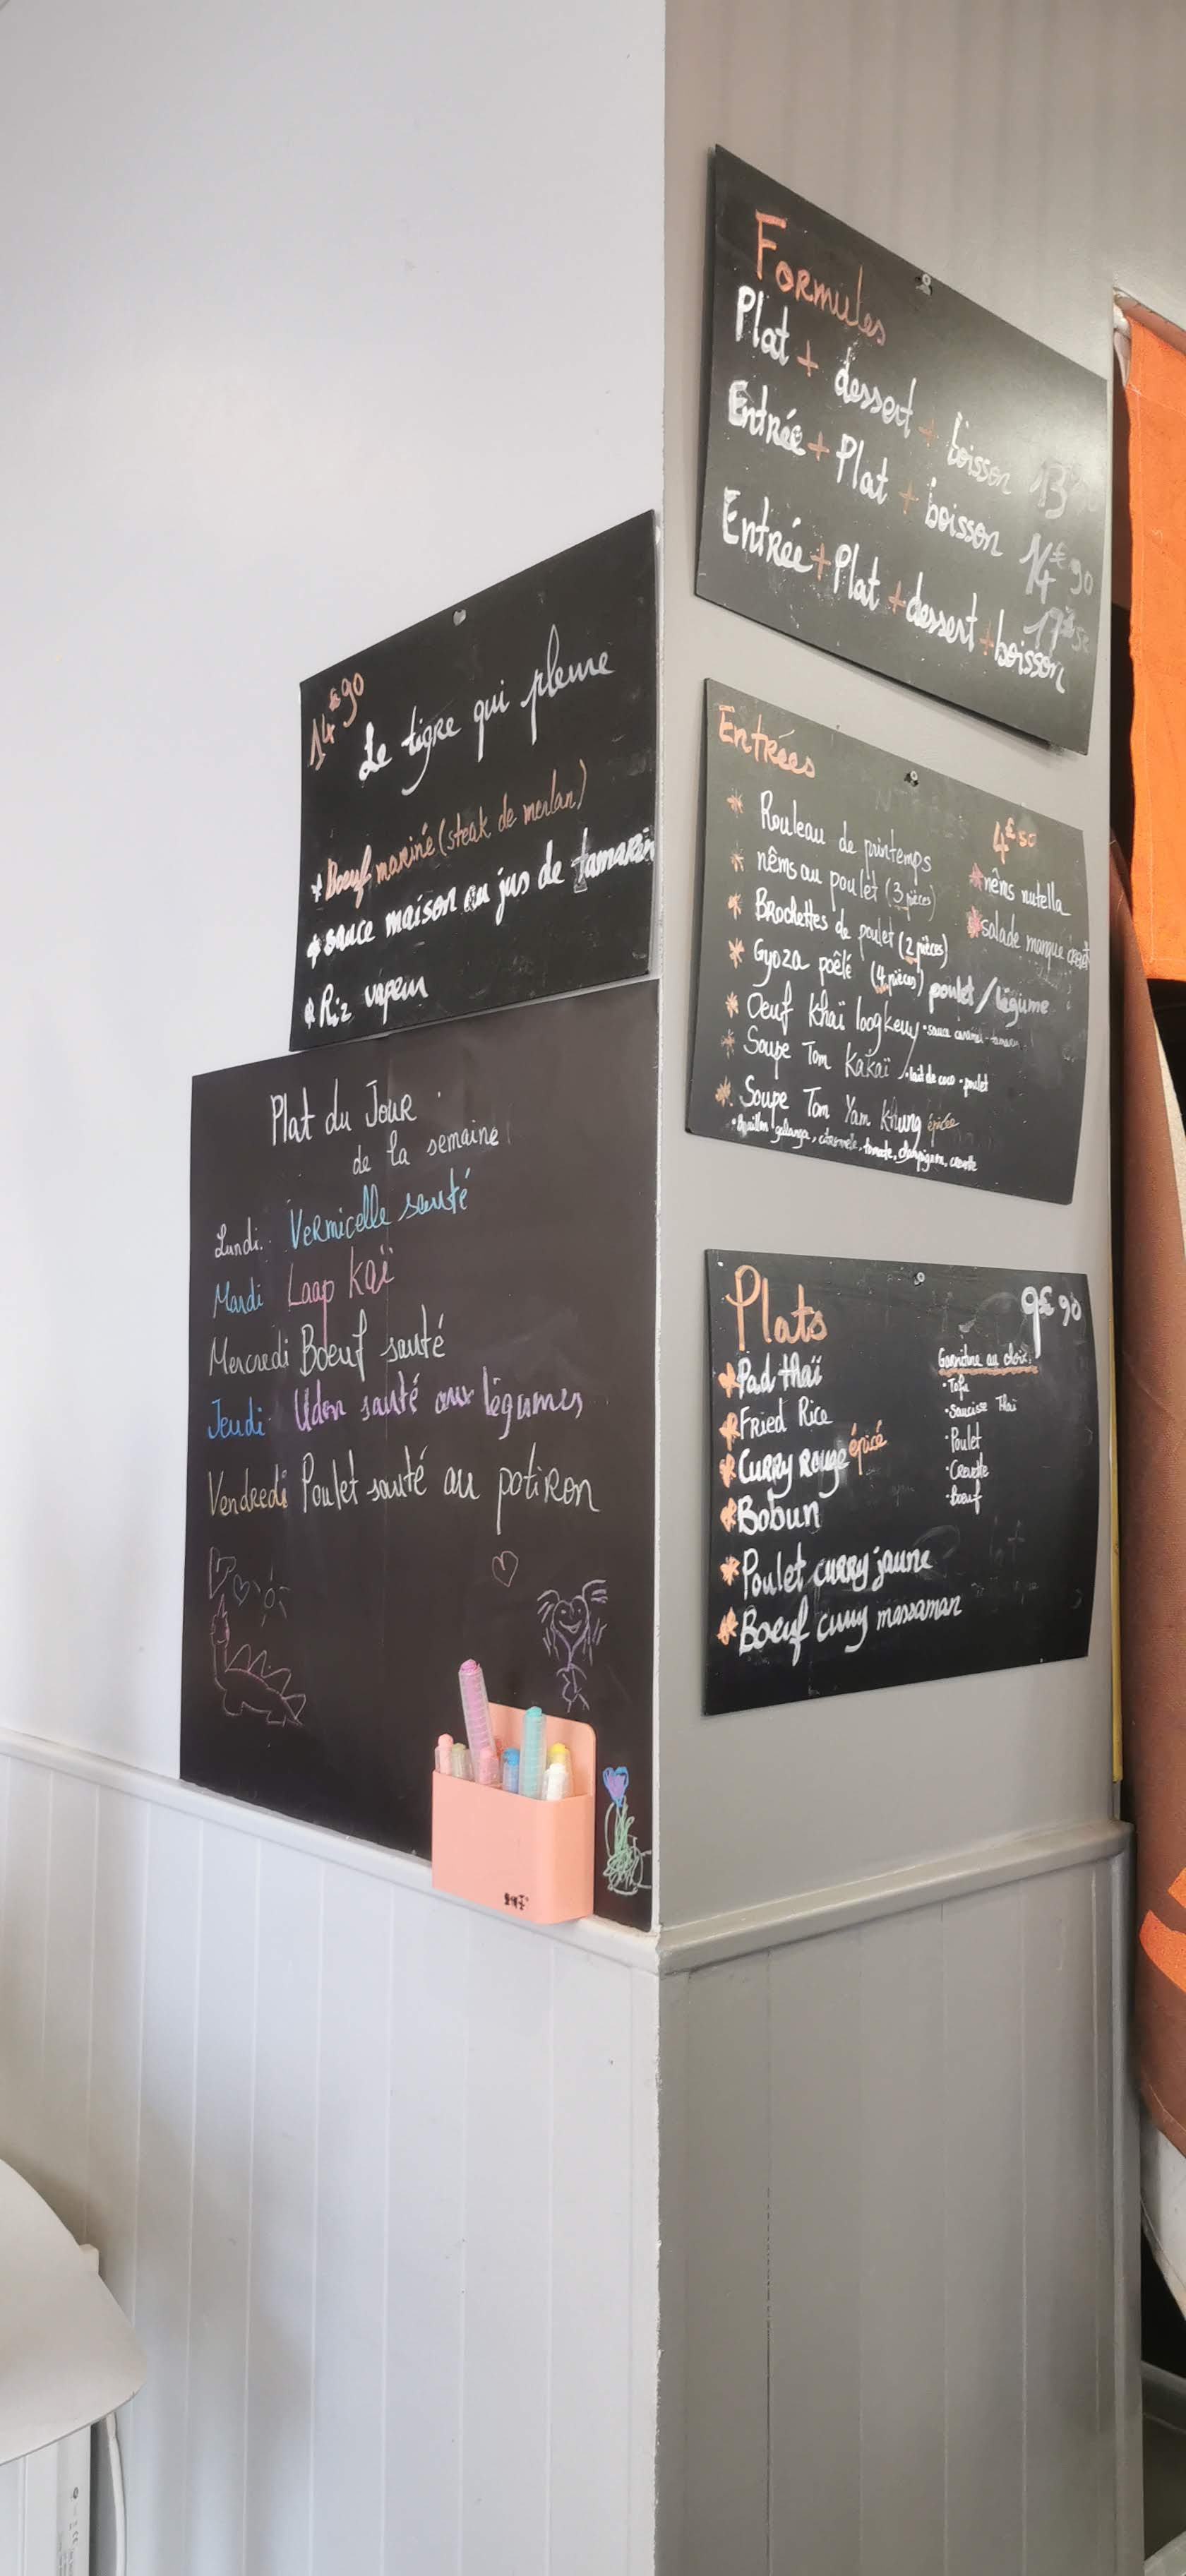 14€90
Le tigre qui pleure
* Boeuf mariné (steak de merlan)
* sauce maison au jus de tamarin
* Riz vapeur
Plat du Jour
de la semaine
Lundi: Vermicelle sauté
Mardi Laap Kaï
Mercredi Boeuf sauté
Jeudi Udon sauté aux légumes
Vendredi Poulet sauté au potiron
Formules
Plat + dessert + boisson
Entrée + Plat + boisson 14€90
Entrée + Plat + dessert + boisson
Entrées
4€50
* Rouleau de printemps
* nêms au poulet (3 pièces)
* Brochettes de poulet (2 pièces)
* Gyoza poêlé (4 pièces) poulet / légume
* Oeuf Khaï loogkeuy
* Soupe Tom Kakaï • lait de coco • poulet
* Soupe Tom Yam Khung épicée
• Bouillon galanga, citronnelle, tomate, champignon, crevette
* nêms nutella
* salade mangue
Plats
9€90
* Pad thaï
* Fried Rice
* Curry rouge épicé
* Bobun
* Poulet curry jaune
* Boeuf curry massaman
Garniture au choix:
• Tofu
• Saucisse Thaï
• Poulet
• Crevette
• Boeuf